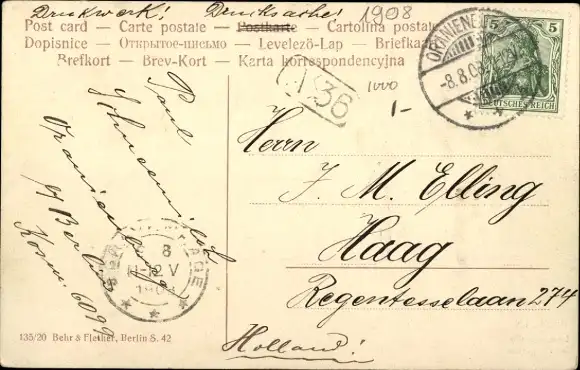 Drukwerk! Drucksache! 1908
Post card — Carte postale — Postkarte — Cartolina postale
Dopisnice — Открытое-письмо — Levelező-Lap — Briefkaart
Brefkort — Brev-Kort — Karta korrespondencyjna
5 5
DEUTSCHES REICH
-8.8.08
136
1000
1-
Herrn
J. M. Elling
Haag
Regentesselaan 274
Holland!
Paul
Oranienburg
b/ Berlin
Kosm. 6099
8
V
1908
135/20 Behr & Fletker, Berlin S. 42